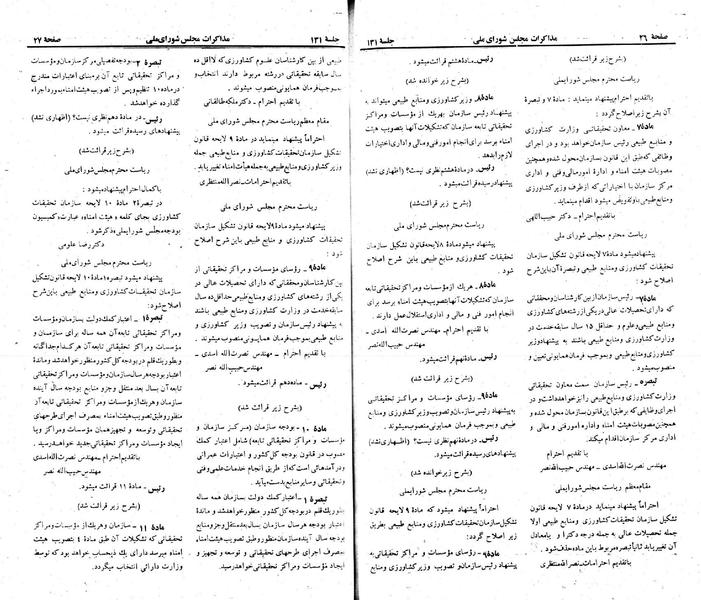 صفحهٔ ۲۶
مذاکرات مجلس شورای ملی
جلسهٔ ۱۳۱
(بشرح زیر قرائت شد)
ریاست محترم مجلس شورایملی
با تقدیم احترام پیشنهاد مینماید: مادهٔ ۷ و تبصرهٔ
آن بشرح زیر اصلاح گردد:
مادهٔ ۷ـ معاون تحقیقاتی وزارت کشاورزی
و منابع طبیعی رئیس سازمان خواهد بود و در اجرای
وظائفی که طبق این قانون بسازمان محول شده و همچنین
مصوبات هیئت امناء و ادارهٔ امور مالی و فنی و اداری
مرکز سازمان با اختیاراتی که از طرف وزیر کشاورزی
و منابع طبیعی باو تفویض میشود اقدام مینماید.
با تقدیم احترام ـ دکتر حبیب‌اللهی
ریاست محترم مجلس شورای ملی
پیشنهاد میشود مادهٔ ۷ لایحه قانون تشکیل سازمان
تحقیقات کشاورزی و منابع طبیعی و تبصرهٔ آن باین شرح
اصلاح شود:
مادهٔ ۷ـ رئیس سازمان از بین کارشناسان و محققانی
که دارای تحصیلات عالی در یکی از رشته‌های کشاورزی
و منابع طبیعی و علوم و حداقل ۱۵ سال سابقه خدمت در
وزارت کشاورزی و منابع طبیعی باشند به پیشنهاد وزیر
کشاورزی و منابع طبیعی و بموجب فرمان همایونی تعیین و
منصوب میشود.
تبصره ـ رئیس سازمان سمت معاون تحقیقاتی
وزارت کشاورزی و منابع طبیعی را نیز خواهد داشت و در
اجرای وظائفی که بر طبق این قانون بسازمان محول شده و
همچنین مصوبات هیئت امناء و اداره امور فنی و مالی و
اداری مرکز سازمان اقدام میکند.
با تقدیم احترام
مهندس نصرت‌الله اسدی ـ مهندس حبیب‌الله نصر
مقام معظم ریاست مجلس شورایملی
احتراماً پیشنهاد مینماید در مادهٔ ۷ لایحهٔ قانون
تشکیل سازمان تحقیقات کشاورزی و منابع طبیعی اولا
جمله تحصیلات عالی به جمله درجه دکترا و یا معادل
آن تغییر یابد ثانیاً تبصره مربوط باین ماده حذف شود.
با تقدیم احترامات ـ نصرالله منتظری
رئیس ـ مادهٔ هشتم قرائت میشود.
(بشرح زیر خوانده شد)
مادهٔ ۸ـ وزیر کشاورزی و منابع طبیعی میتواند به
پیشنهاد رئیس سازمان بهریک از مؤسسات ومراکز
تحقیقاتی تابعه سازمان که تشکیلات آنها بتصویب هیئت
امناء برسد برای انجام امور فنی و مالی و اداری اختیارات
لازم را بدهد.
رئیس ـ در مادهٔ هشتم نظری نیست؟ (اظهاری نشد)
پیشنهاد رسیده قرائت میشود.
(بشرح زیر قرائت شد)
ریاست محترم مجلس شورای ملی
پیشنهاد میشود مادهٔ ۸ لایحه قانون تشکیل سازمان
تحقیقات کشاورزی و منابع طبیعی باین شرح اصلاح
شود.
مادهٔ ۸ـ هریک از مؤسسات ومراکز تحقیقاتی تابعه
سازمان که تشکیلات آنها بتصویب هیئت امناء برسد برای
انجام امور فنی و مالی و اداری استقلال عمل دارند.
با تقدیم احترام ـ مهندس نصرت‌الله اسدی ـ
مهندس حبیب‌الله نصر
رئیس ـ مادهٔ نهم قرائت میشود.
(بشرح زیر قرائت شد)
مادهٔ ۹ـ رؤسای مؤسسات و مراکز تحقیقاتی
به پیشنهاد رئیس سازمان و تصویب وزیر کشاورزی و منابع
طبیعی و بموجب فرمان همایونی منصوب میشوند.
رئیس ـ در مادهٔ نهم نظری نیست؟ (اظهاری نشد)
پیشنهادهای رسیده قرائت میشود.
(بشرح زیر خوانده شد)
ریاست محترم مجلس شورایملی
احتراماً پیشنهاد میشود که مادهٔ ۹ لایحهٔ قانون
تشکیل سازمان تحقیقات کشاورزی و منابع طبیعی بطریق
زیر اصلاح گردد.
مادهٔ ۹ـ رؤسای مؤسسات و مراکز تحقیقاتی به
پیشنهاد رئیس سازمان و تصویب وزیر کشاورزی و منابع
جلسهٔ ۱۳۱
مذاکرات مجلس شورای ملی
صفحهٔ ۲۷
طبیعی از بین کارشناسان علوم کشاورزی که لااقل ده
سال سابقه تحقیقاتی در رشته مربوط دارند انتخاب و
بموجب فرمان همایونی منصوب میشوند.
با تقدیم احترام ـ دکتر ملکه طالقانی
مقام معظم ریاست مجلس شورای ملی
احتراماً پیشنهاد مینماید در مادهٔ ۹ لایحه قانون
تشکیل سازمان تحقیقات کشاورزی و منابع طبیعی جمله
وزیر کشاورزی و منابع طبیعی به جمله هیأت امناء تغییر یابد
با تقدیم احترامات ـ نصرالله منتظری
ریاست محترم مجلس شورای ملی
پیشنهاد میشود مادهٔ ۹ لایحه قانون تشکیل سازمان
تحقیقات کشاورزی و منابع طبیعی باین شرح اصلاح
شود:
مادهٔ ۹ـ رؤسای مؤسسات و مراکز تحقیقاتی از
بین کارشناسان و محققانی که دارای تحصیلات عالی در
یکی از رشته‌های کشاورزی و منابع طبیعی حداقل ده سال
سابقه خدمت در وزارت کشاورزی و منابع طبیعی باشند
به پیشنهاد رئیس سازمان و تصویب وزیر کشاورزی و
منابع طبیعی بموجب فرمان همایونی منصوب میشوند.
با تقدیم احترام ـ مهندس نصرت‌الله اسدی ـ
مهندس حبیب‌الله نصر
رئیس ـ ماده دهم قرائت میشود.
(بشرح زیر قرائت شد)
مادهٔ ۱۰ـ بودجه سازمان (مرکز سازمان و
مؤسسات و مراکز تحقیقاتی تابعه) شامل اعتبار کمک
مصوب در قانون بودجه کل کشور و اعتبارات عمرانی
و درآمدهائی است که از طریق انجام خدمات علمی و فنی
و تحقیقاتی و سایر منابع بدست میآید.
تبصرهٔ ۱ـ اعتبار کمک دولت بسازمان همه ساله
بطور یک قلم در بودجه کل کشور منظور خواهد شد و ماندهٔ
اعتبار بودجه هرسال سازمان بسال بعد منتقل و جزو منابع
بودجه سال آینده سازمان منظور و طبق تصویب هیئت امناء
بمصرف اجرای طرحهای تحقیقاتی و توسعه و تجهیز و
ایجاد مؤسسات و مراکز تحقیقاتی خواهد رسید.
تبصرهٔ ۲ـ بودجه تفصیلی مرکز سازمان و مؤسسات
و مراکز تحقیقاتی تابع آن برمبنای اعتبارات مندرج
در مادهٔ ۱۰ تنظیم و پس از تصویب هیئت امناء بمورد اجراء
گذارده خواهد شد.
رئیس ـ در مادهٔ دهم نظری نیست؟ (اظهاری نشد)
پیشنهادهای رسیده قرائت میشود.
(بشرح زیر قرائت شد)
ریاست محترم مجلس شورای ملی
با کمال احترام پیشنهاد میشود:
در تبصره ۲ مادهٔ ۱۰ لایحه سازمان تحقیقات
کشاورزی بجای کلمهٔ «هیئت امناء» عبارت «کمیسیون
بودجه مجلس شورایملی» ذکر شود.
دکتر رضا علومی
ریاست محترم مجلس شورای ملی
پیشنهاد میشود تبصره ۱ مادهٔ ۱۰ لایحه قانون تشکیل
سازمان تحقیقات کشاورزی و منابع طبیعی باین شرح
اصلاح شود:
تبصرهٔ ۱ـ اعتبار کمک دولت بسازمان و مؤسسات
و مراکز تحقیقاتی تابعه آن همه ساله برای سازمان و
مؤسسات و مراکز تحقیقاتی تابعه آن هر کدام جداگانه
و بطور یک قلم در بودجه کل کشور منظور خواهد شد و ماندهٔ
اعتبار بودجه هرسال سازمان و مؤسسات و مراکز تحقیقاتی
تابعه آن بسال بعد منتقل و جزو منابع بودجه سال آیندهٔ
سازمان و هریک از مؤسسات و مراکز تحقیقاتی تابعه آن
منظور و طبق تصویب هیئت امناء بمصرف اجرای طرحهای
تحقیقاتی و توسعه و تجهیز همان مؤسسات و مراکز و یا
ایجاد مؤسسات و مراکز تحقیقاتی جدید خواهد رسید.
با تقدیم احترام ـ مهندس نصرت‌الله اسدی
مهندس حبیب‌الله نصر
رئیس ـ مادهٔ ۱۱ قرائت میشود.
(بشرح زیر قرائت شد)
مادهٔ ۱۱ـ سازمان و هریک از مؤسسات و مراکز
تحقیقاتی که تشکیلات آن طبق مادهٔ ۴ بتصویب هیئت
امناء میرسد دارای یک ذیحساب خواهد بود که توسط
وزارت دارائی انتخاب میگردد.